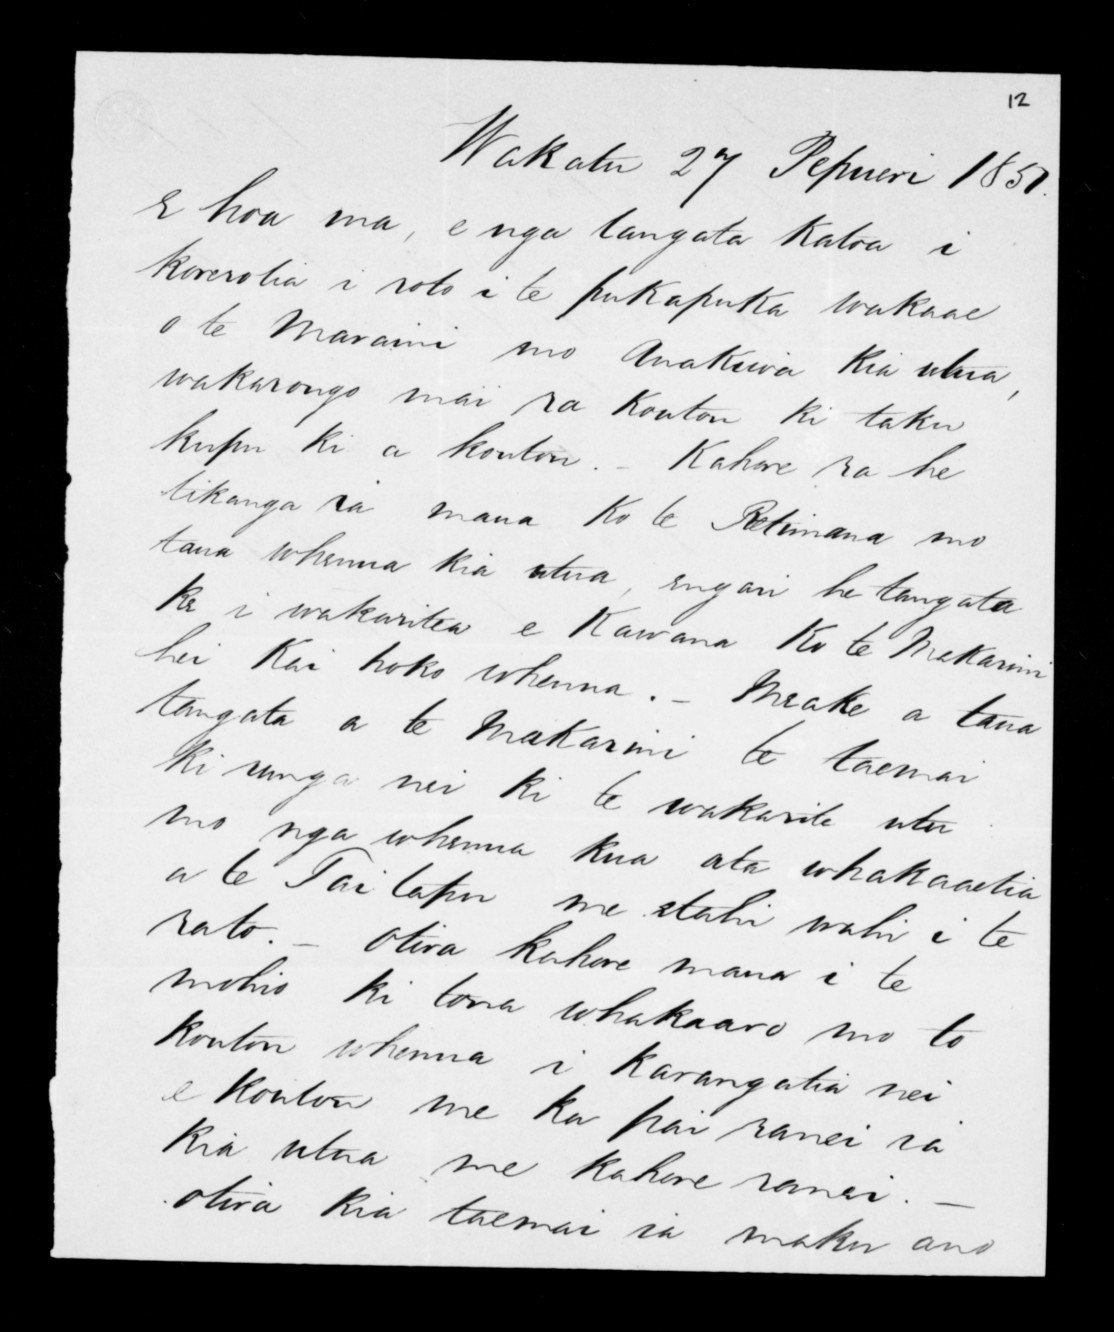 12
Wakatu 27 Pepueri 1857.
E hoa ma, e nga tangata katoa i
korerotia i roto i te pukapuka wakaae
o te Maraini mo Anakiwa kia utua,
wakarongo mai ra koutou ki taku
kupu ki a koutou. - Kahore ra he
tikanga ia mana ko te Retimana mo
taua whenua kia utua, engari he tangata
ke i wakaritea e Kawana ko te Makarini
hei kai hoko whenua. - Meake a tana
tangata a te Makarini te taemai
ki runga nei ki te wakarite utu
mo nga whenua kua ata whakaaetia
a te Tai tapu me etahi wahi i te
rato. - Otira kahore manu i te
mohio ki tona whakaaro mo to
koutou whenua i karangatia nei
e koutou me ka pai ranei ia
kia utua me kahore ranei. -
otira kia taemai ia maku ano